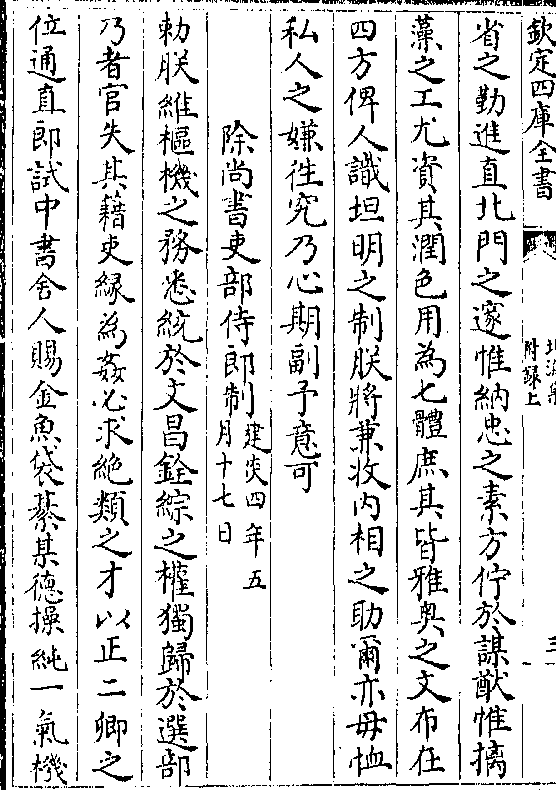 欽定四庫全書
附錄上
省之勤進直北門之邃惟納忠之素方佇於謀猷惟摛
藻之工尤資其潤色用為七體庶其皆雅奥之文布在
四方俾人識坦明之制朕將兼收内相之助爾亦毋恤
私人之嫌徃究乃心期副予意可
除尚書吏部侍郎制建炎四年五月十七日
勅朕維樞機之務悉統於文昌銓綜之權獨歸於選部
乃者官失其籍吏緣為姦必求絶類之才以正二卿之
位通直郎試中書舍人賜金魚袋綦某德操純一氣機